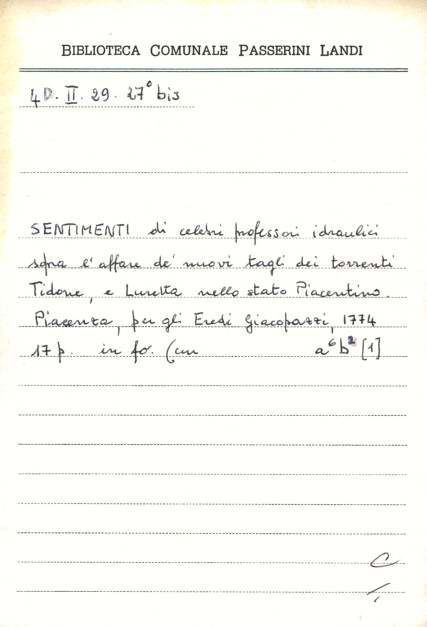 BIBLIOTECA COMUNALE PASSERINI LANDI
4D. II. 29. 27° bis
SENTIMENTI di celebri professori idraulici
sopra l'affare de' nuovi tagli dei torrenti
Tidone, e Luretta nello stato Piacentino.
Piacenza, per gli Eredi Giacopazzi, 1774
17 p. in fo. (cm a⁶b² [1]
C